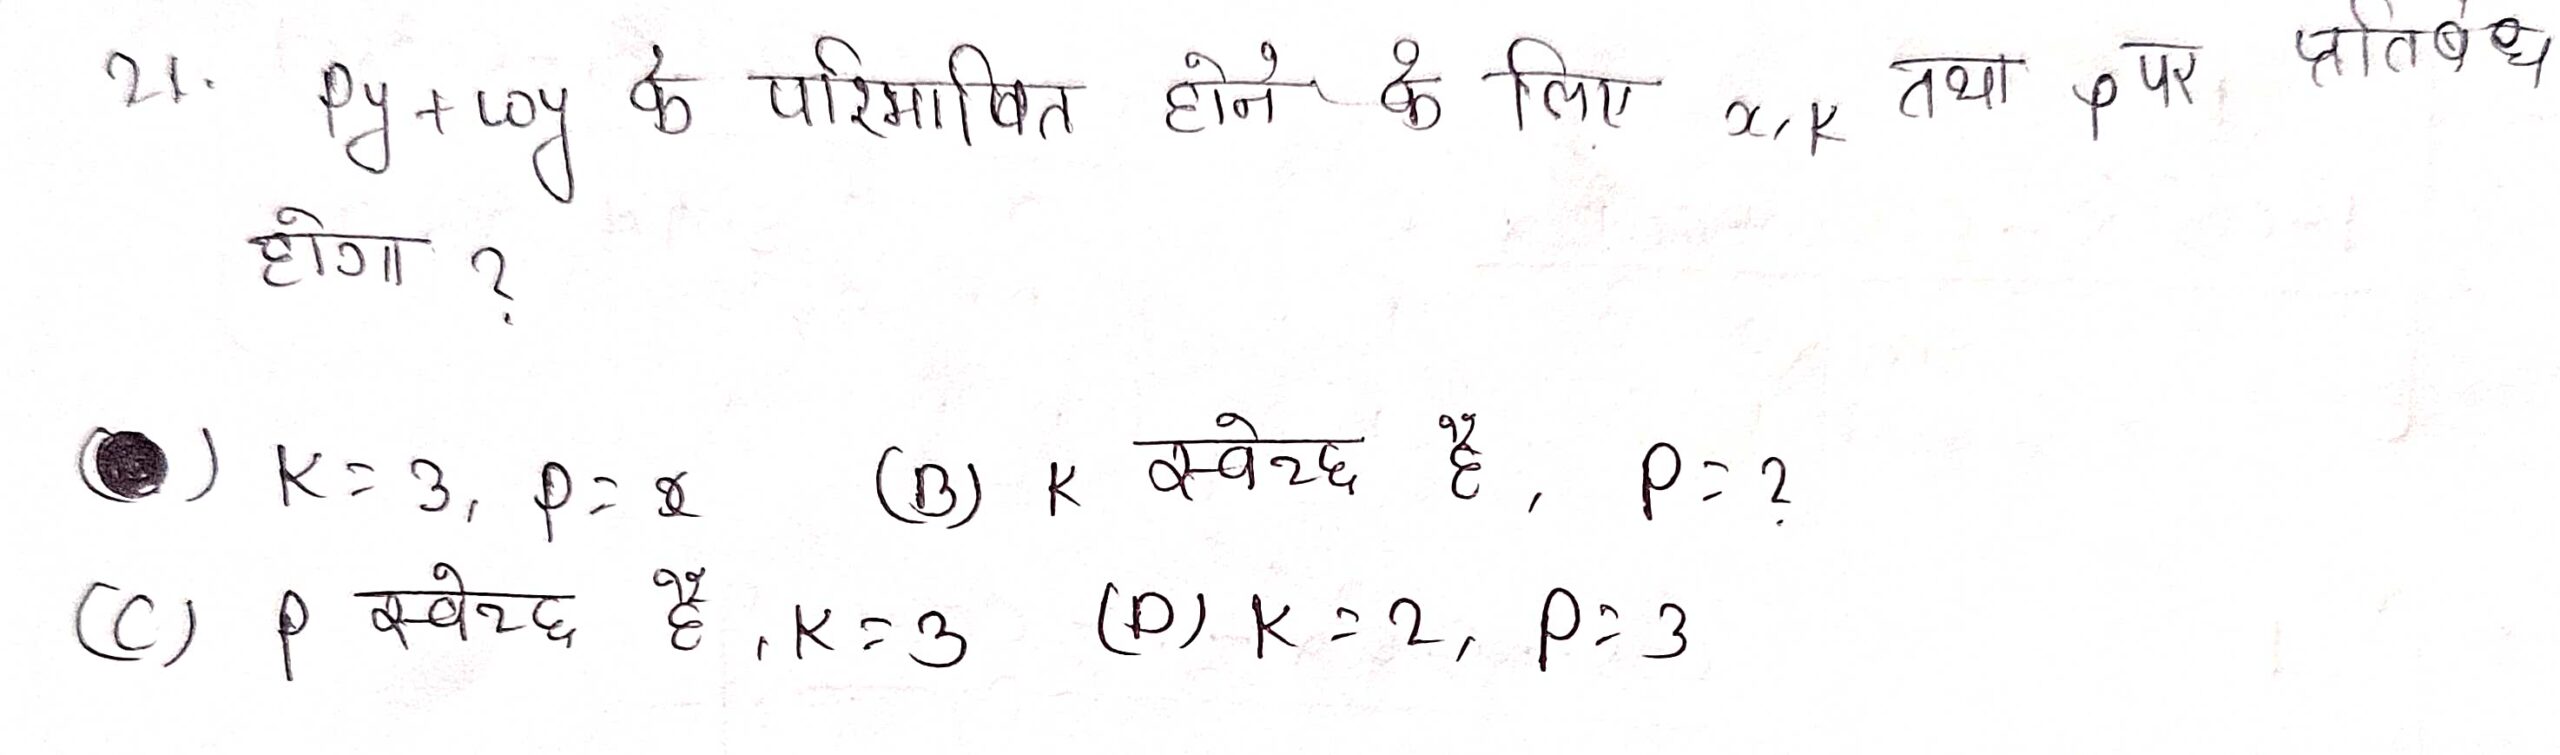 21. Py + wy के परिभाषित होने के लिए x, k तथा p पर प्रतिबंध
होगा ?
( ) K = 3, p = n (B) K स्वेच्छ है, P = ?
(C) p स्वेच्छ है, K = 3 (D) K = 2, P = 3